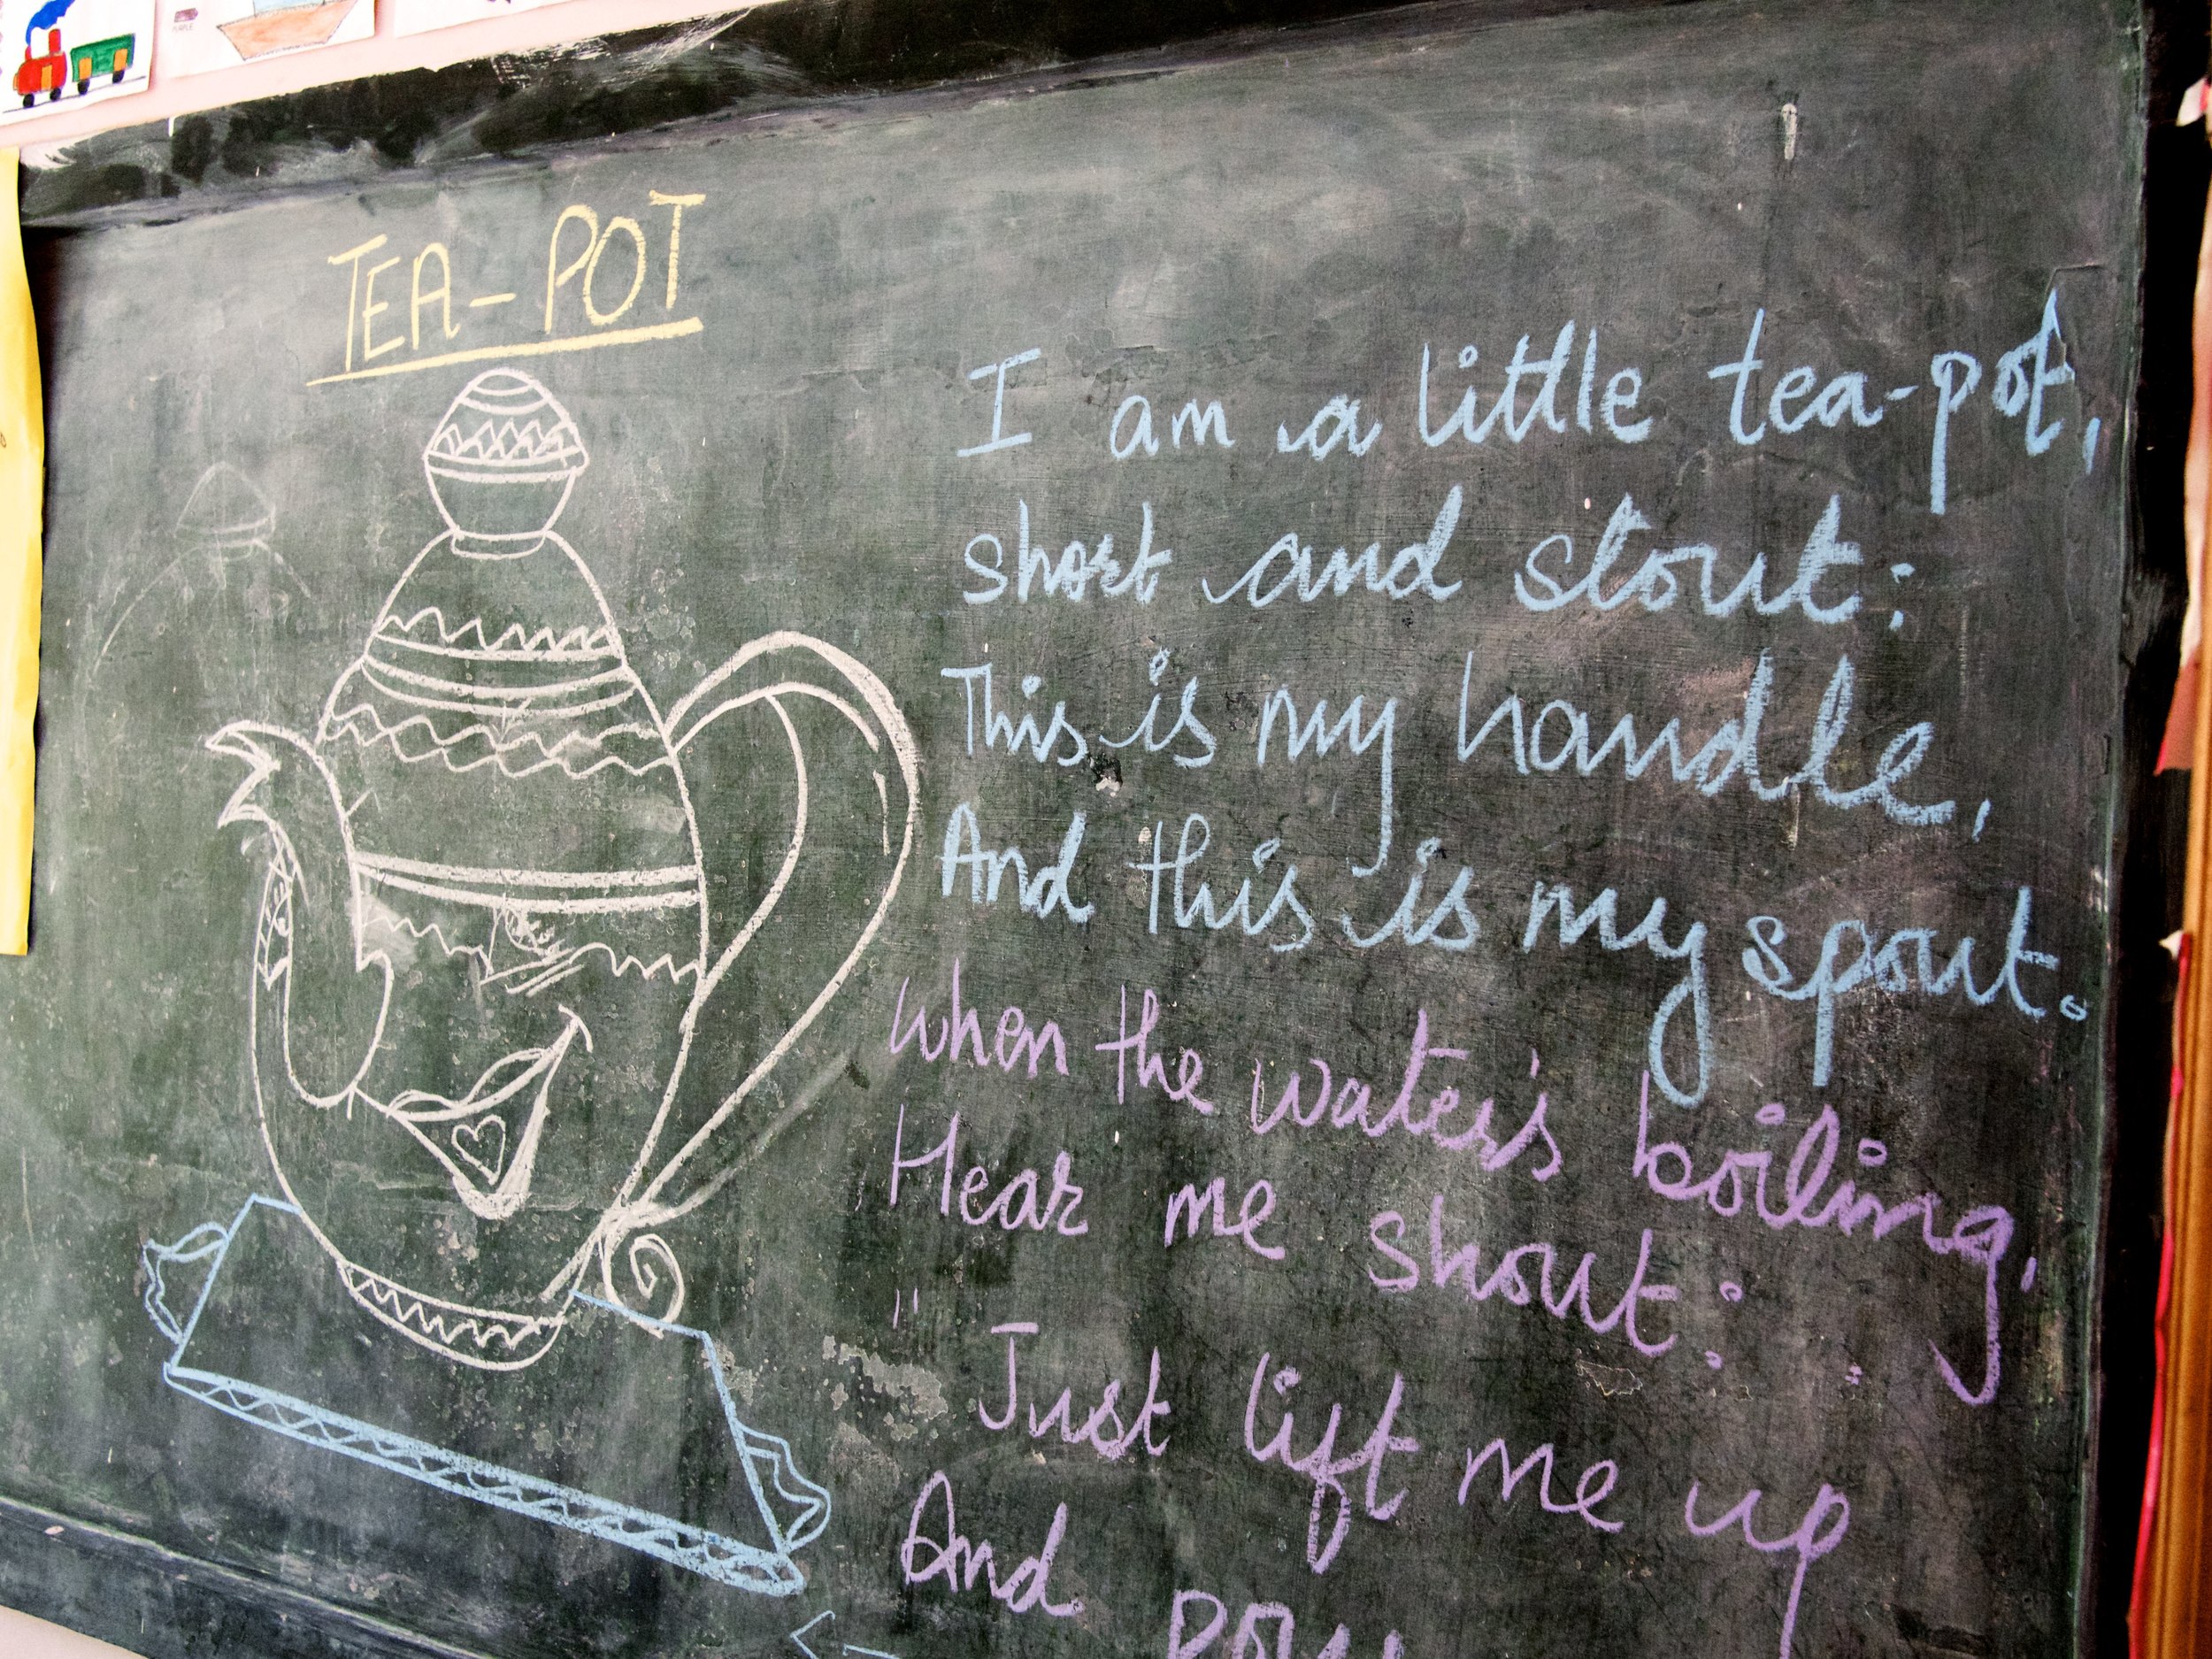 TEA-POT
I am a little tea-pot,
short and stout;
This is my handle,
And this is my spout.
When the water's boiling,
Hear me shout:
"Just lift me up
And pou